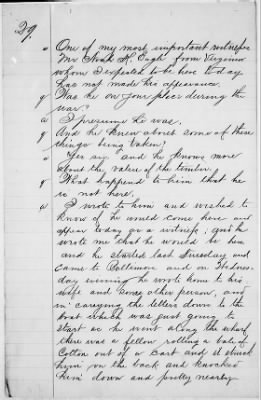 29.
a One of my most important witnesses
Mr Noah H. from Virginia
whom I expected to be here today
has not made his appearance.
q Was he on your place during the
war?
a I presume he was.
q And he knew about some of these
things being taken?
a Yes sir, and he knows more
about the value of the timber.
q What happend to him that he
is not here.
a I wrote to him and wished to
know if he would come here and
appear today as a witness, and he
wrote me that he would be here
and he started last Tuesday and
came to Baltimore and on Wednes-
day evening he wrote home to his
wife and some other person, and
in carrying the letters down to the
boat which was just going to
start as he went along the wharf
there was a fellow rolling a bale of
Cotton out of a cart and it struck
him on the back and knocked
him down and pretty nearly